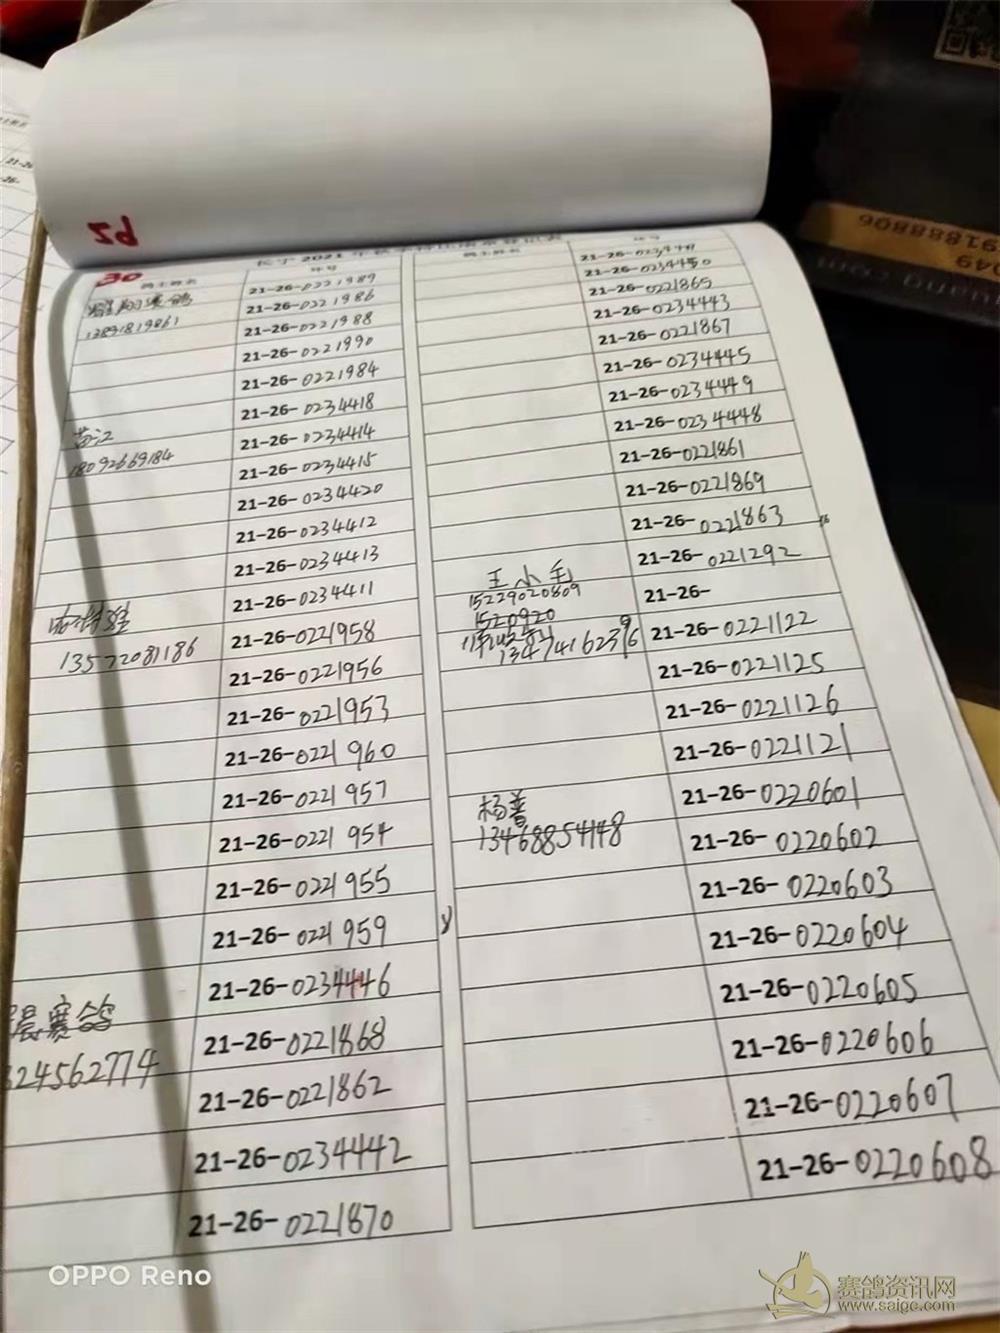 30
环号
21-26-0221989
21-26-0221986
13891819861
21-26-0221988
21-26-0221990
21-26-0221984
21-26-0234418
苗江
21-26-0234414
18092669184
21-26-0234415
21-26-0234420
21-26-0234412
21-26-0234413
21-26-0234411
21-26-0221958
13572081186
21-26-0221956
21-26-0221953
21-26-0221960
21-26-0221957
21-26-0221954
21-26-0221955
21-26-0221959
21-26-0234446
晨赛鸽
21-26-0221868
824562774
21-26-0221862
21-26-0234442
21-26-0221870
环号
21-26-0234450
21-26-0221865
21-26-0234443
21-26-0221867
21-26-0234445
21-26-0234449
21-26-0234448
21-26-0221861
21-26-0221869
21-26-0221863
21-26-0221292
王小毛
15229020809
21-26-
1520920
21-26-0221122
21-26-0221125
21-26-0221126
21-26-0221121
杨普
21-26-0220601
13468854148
21-26-0220602
21-26-0220603
21-26-0220604
21-26-0220605
21-26-0220606
21-26-0220607
21-26-0220608
91888806
049
OPPO Reno
赛鸽资讯网
www.saige.com